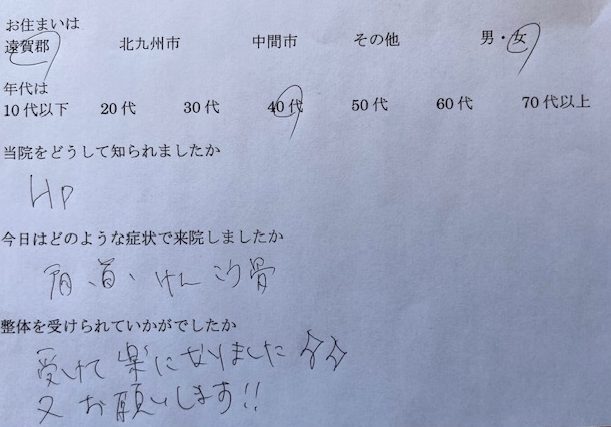 お住まいは
遠賀郡 北九州市 中間市 その他 男・女
年代は
10代以下 20代 30代 40代 50代 60代 70代以上
当院をどうして知られましたか
HP
今日はどのような症状で来院しましたか
肩、首、けんこう骨
整体を受けられていかがでしたか
受けて楽になりました☆☆
又お願いします!!